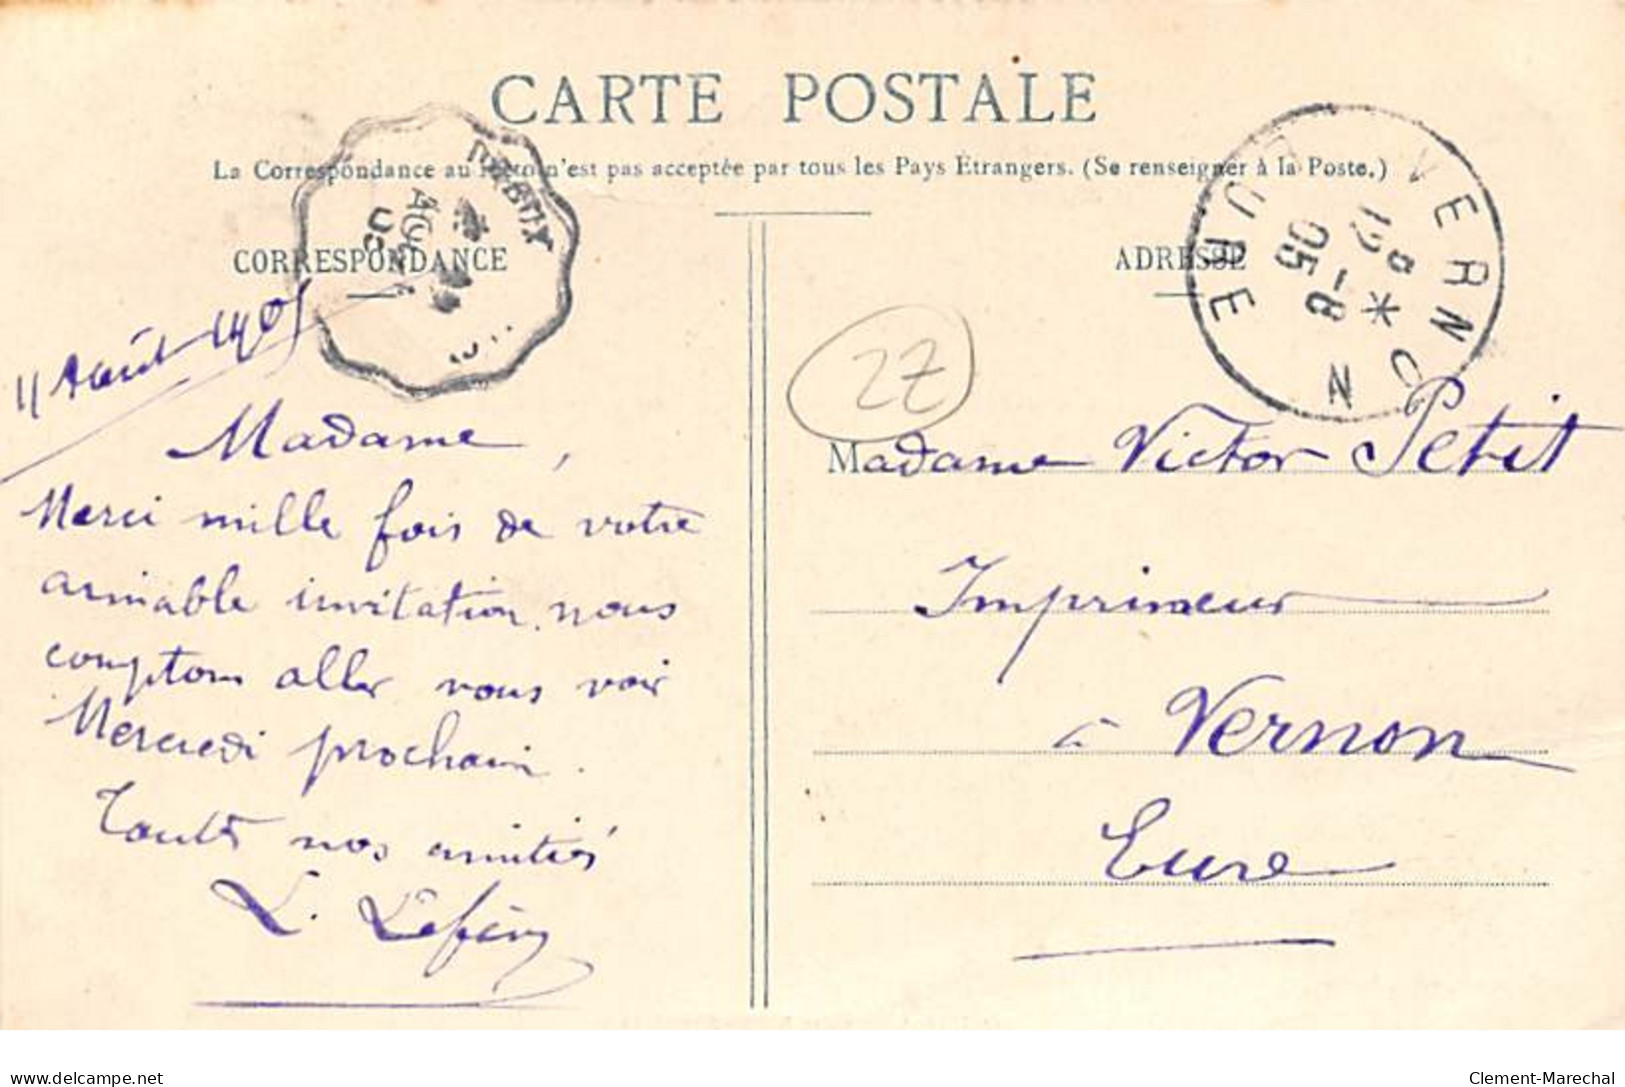 CARTE POSTALE
La Correspondance au recto n'est pas acceptée par tous les Pays Etrangers. (Se renseigner à la Poste.)
CORRESPONDANCE
11 Août 1905
Madame,
Merci mille fois de votre
aimable invitation, nous
comptons aller vous voir
Mercredi prochain.
Toutes nos amitiés
L.
ADRESSE
Madame Victor Petit
Imprimeur
à Vernon
Eure
27
DREUX
AOUT
05
VERNON
EURE
12 - 8
05
delcampe.net
Clement-Marechal